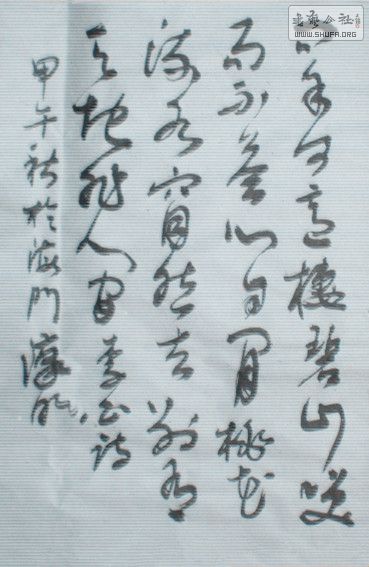 问余何意棲碧山笑
而不荅心自閒桃花
流水窅然去别有
天地非人间李白诗
甲午秋於海門
书艺公社
WWW.SHUFA.ORG